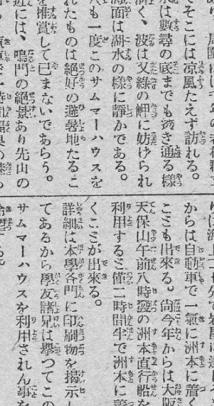 てそこには涼風たえず訪れる。
水は數尋の底までも透き通る樣
に淸く、波は又綠の岬に妨げられ
海面は湖水の樣に靜かである。
も一度このサムマーハウスを
れたものは絕好の避暑地たるこ
推賞して已まないであらう。
近には、鳴門の絕景あり先山の
からは自動車で一氣に洲本に着く
ことも出來る。尙今年からは大阪
天保山午前八時發の洲本直行船を
利用すると僅二時間半で洲本に着
くことが出來る。
詳細は大學各門に印刷物を揭示し
てあるから學友諸兄は擧つてこの
サムマーハウスを利用されん事を